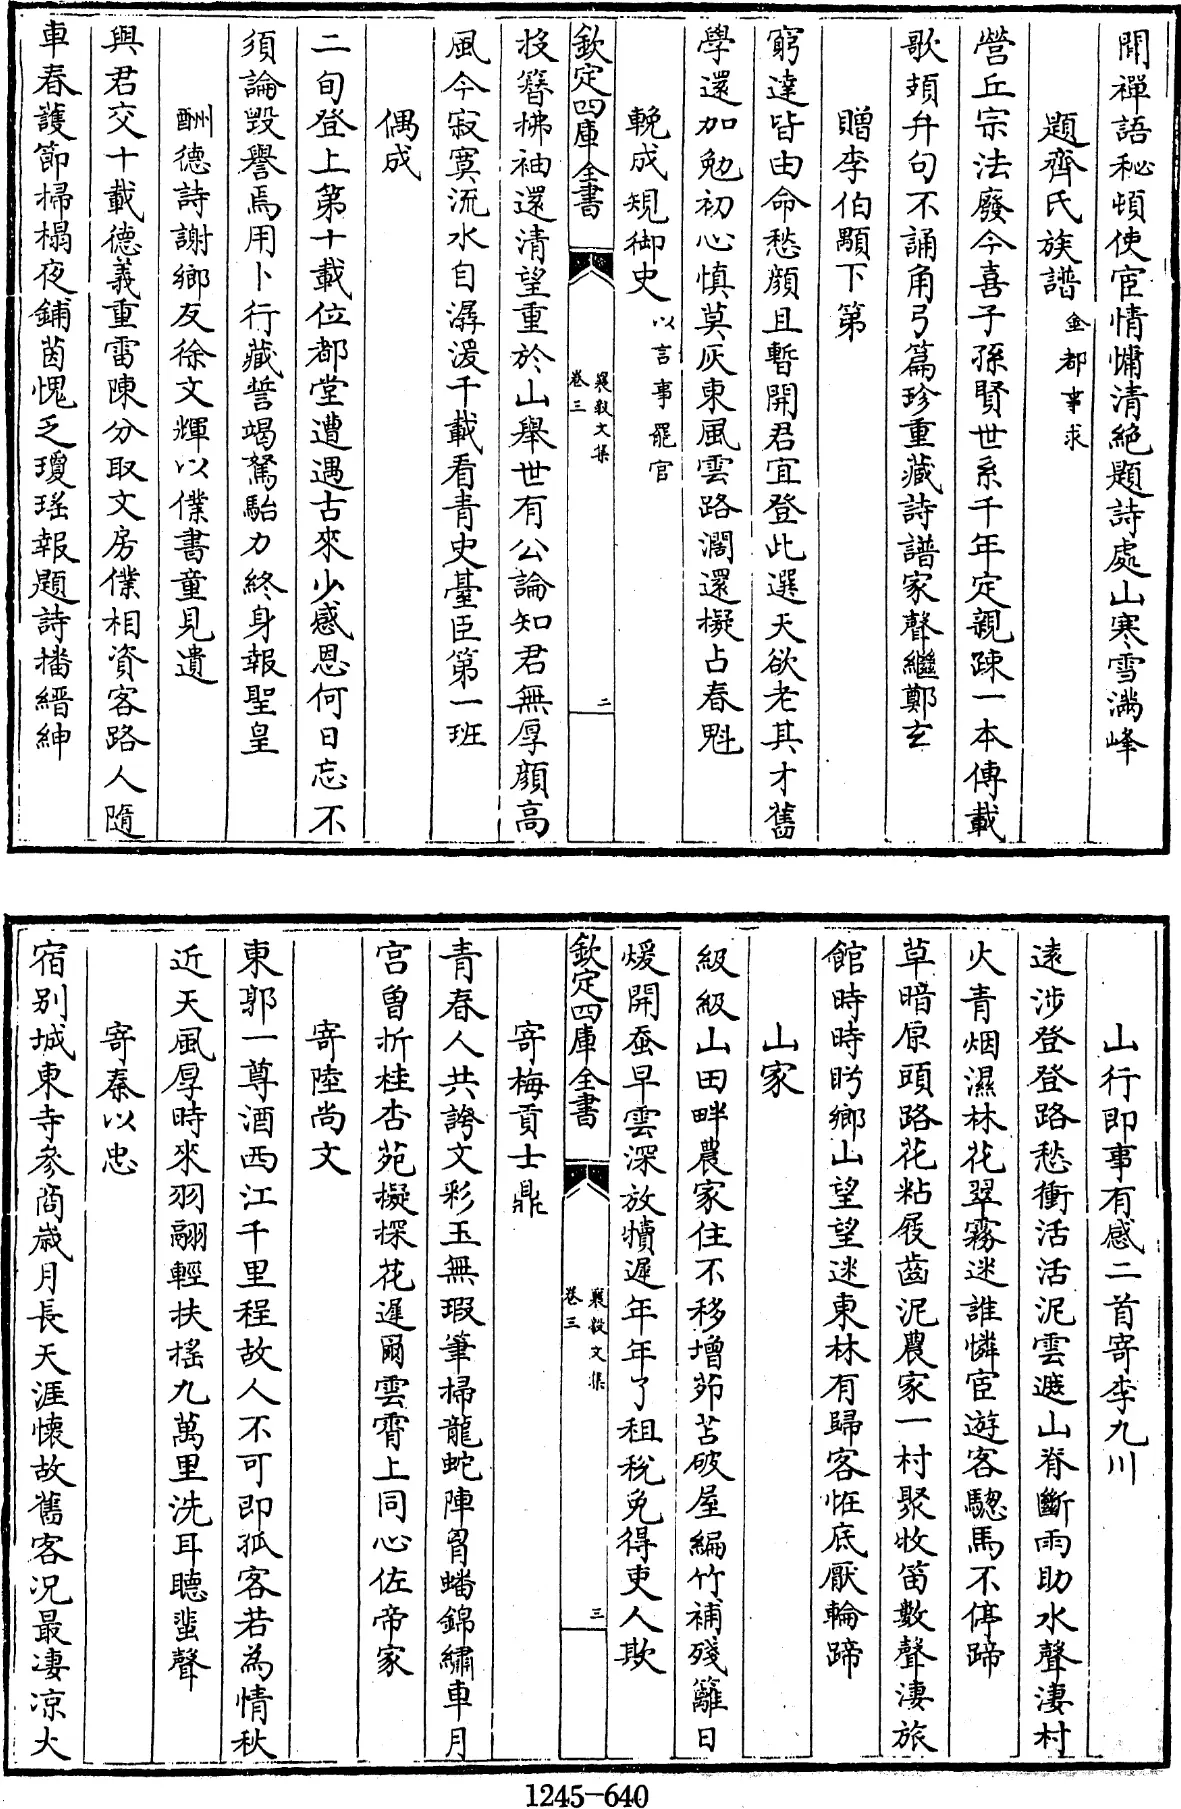 聞禪語秘頓使宦情慵清絶題詩處山寒雪滿峰
題齊氏族譜金都事求
營丘宗法廢今喜子孫賢世系千年定親踈一本傳載
歌頍弁句不誦角弓篇珍重藏詩譜家聲繼鄭玄
贈李伯顒下第
窮達皆由命愁顔且暫開君宜登此選天欲老其才舊
學還加勉初心慎莫灰東風雲路濶還擬占春魁
輓成規御史以言事罷官
欽定四庫全書
襄毅文集
卷三
二
投簪拂袖還清望重於山舉世有公論知君無厚顔高
風今寂寞流水自潺湲千載看青史臺臣第一班
偶成
二旬登上第十載位都堂遭遇古來少感恩何日忘不
須論毀譽焉用卜行藏誓竭駑駘力終身報聖皇
酬德詩謝鄉友徐文輝以僕書童見遺
與君交十載德義重雷陳分取文房僕相資客路人隨
車春護節掃榻夜鋪茵愧乏瓊瑤報題詩播縉紳
山行即事有感二首寄李九川
遠涉登登路愁衝活活泥雲遮山脊斷雨助水聲淒村
火青烟濕林花翠霧迷誰憐宦遊客驄馬不停蹄
草暗原頭路花粘屐齒泥農家一村聚牧笛數聲淒旅
館時時眄鄉山望望迷東林有歸客恠底厭輪蹄
山家
級級山田畔農家住不移增茆苫破屋編竹補殘籬日
煖開蚕早雲深放犢遲年年了租稅免得吏人欺
欽定四庫全書
襄毅文集
卷三
三
寄梅貢士鼎
青春人共誇文彩玉無瑕筆掃龍蛇陣胷蟠錦繡車月
宮曾折桂杏苑擬探花遲爾雲霄上同心佐帝家
寄陸尚文
東郭一尊酒西江千里程故人不可即孤客若為情秋
近天風厚時來羽翮輕扶搖九萬里洗耳聽蜚聲
寄秦以忠
宿别城東寺參商歲月長天涯懷故舊客況最淒凉火
1245-640